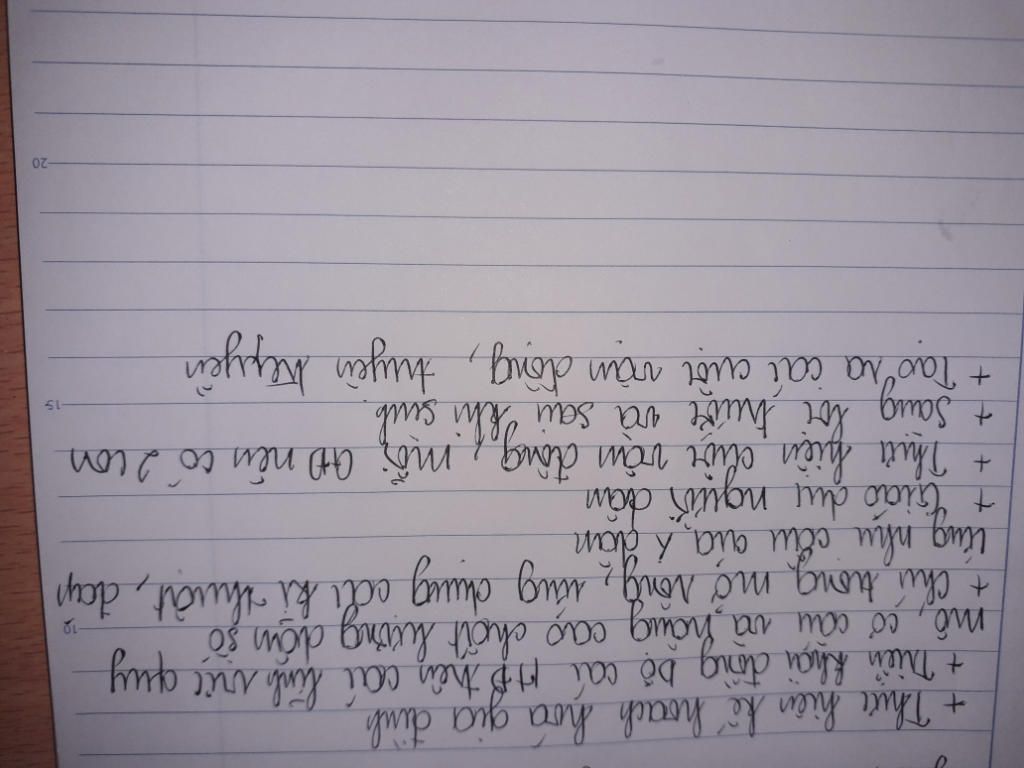 + Thực hiện kế hoạch hoá gia đình
+ Triển khai đồng bộ các HĐ trên các lĩnh vực quy
mô, cơ cấu và nâng cao chất lượng dân số
10
+ Chú trọng mở rộng, ứng dụng các kĩ thuật, đáp
ứng nhu cầu của dân
+ Giáo dục người dân
+ Thực hiện cuộc vận động, mỗi GĐ nên có 2 con
+ Sàng lọc trước và sau khi sinh.
15
+ Tạo ra các cuộc vận động, tuyên truyền
20